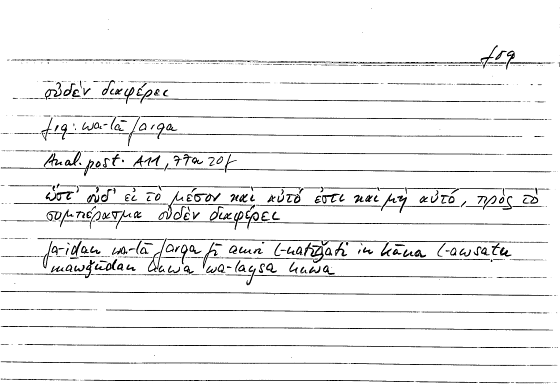 frq
οὐδὲν διαφέρει
frq: wa-lā farqa
Anal. post. A11, 77a 20f
ὥστ' οὐδ' εἰ τὸ μέσον καὶ αὐτό ἐστι καὶ μὴ αὐτό, πρὸς τὸ
συμπέρασμα οὐδὲν διαφέρει
fa-iḏan wa-lā farqa fī amri l-natīǧati in kāna l-awsaṭu
mawǧūdan huwa wa-laysa huwa